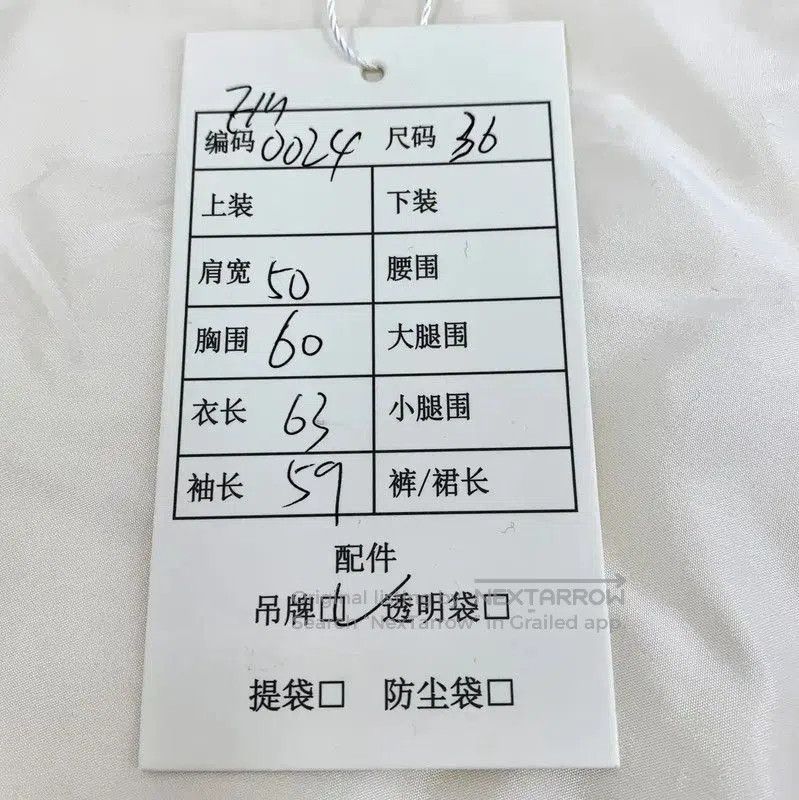 编码 0024 尺码 36
上装 下装
肩宽 50 腰围
胸围 60 大腿围
衣长 63 小腿围
袖长 59 裤/裙长
配件
吊牌☑ 透明袋□
Original listing by NEXTARROW
Search "NexTarrow" in Grailed app.
提袋□ 防尘袋□